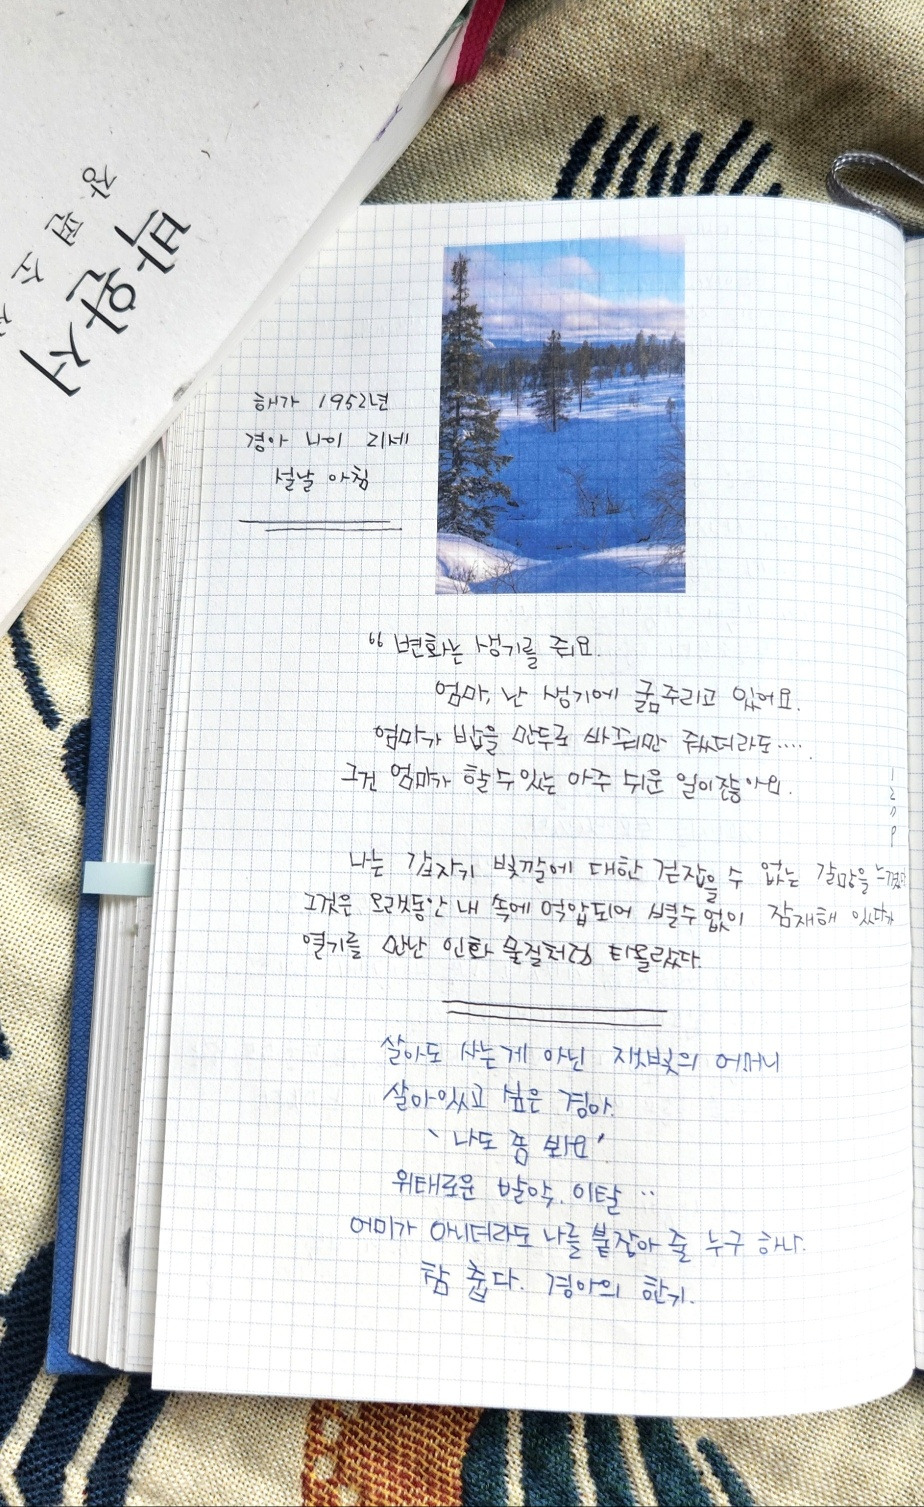 박완서
장편소
해가 1952년
경아 나이 21세
설날 아침
“ 변화는 생기를 줘요.
엄마, 난 생기에 굶주리고 있어요.
엄마가 밥을 만두로 바꿔만 줬더라도....
그건 엄마가 할 수 있는 아주 쉬운 일이잖아요.
나는 갑자기 빛깔에 대한 걷잡을 수 없는 갈망을 느꼈다
그것은 오랫동안 내 속에 억압되어 별수없이 잠재해 있다가
열기를 만난 인화 물질처럼 타올랐다.
살아도 사는게 아닌 잿빛의 어머니
살아있고 싶은 경아.
‘ 나도 좀 봐요 ’
위태로운 발악. 이탈 ..
어미가 아니더라도 나를 붙잡아 줄 누구 하나.
참 춥다. 경아의 한기.